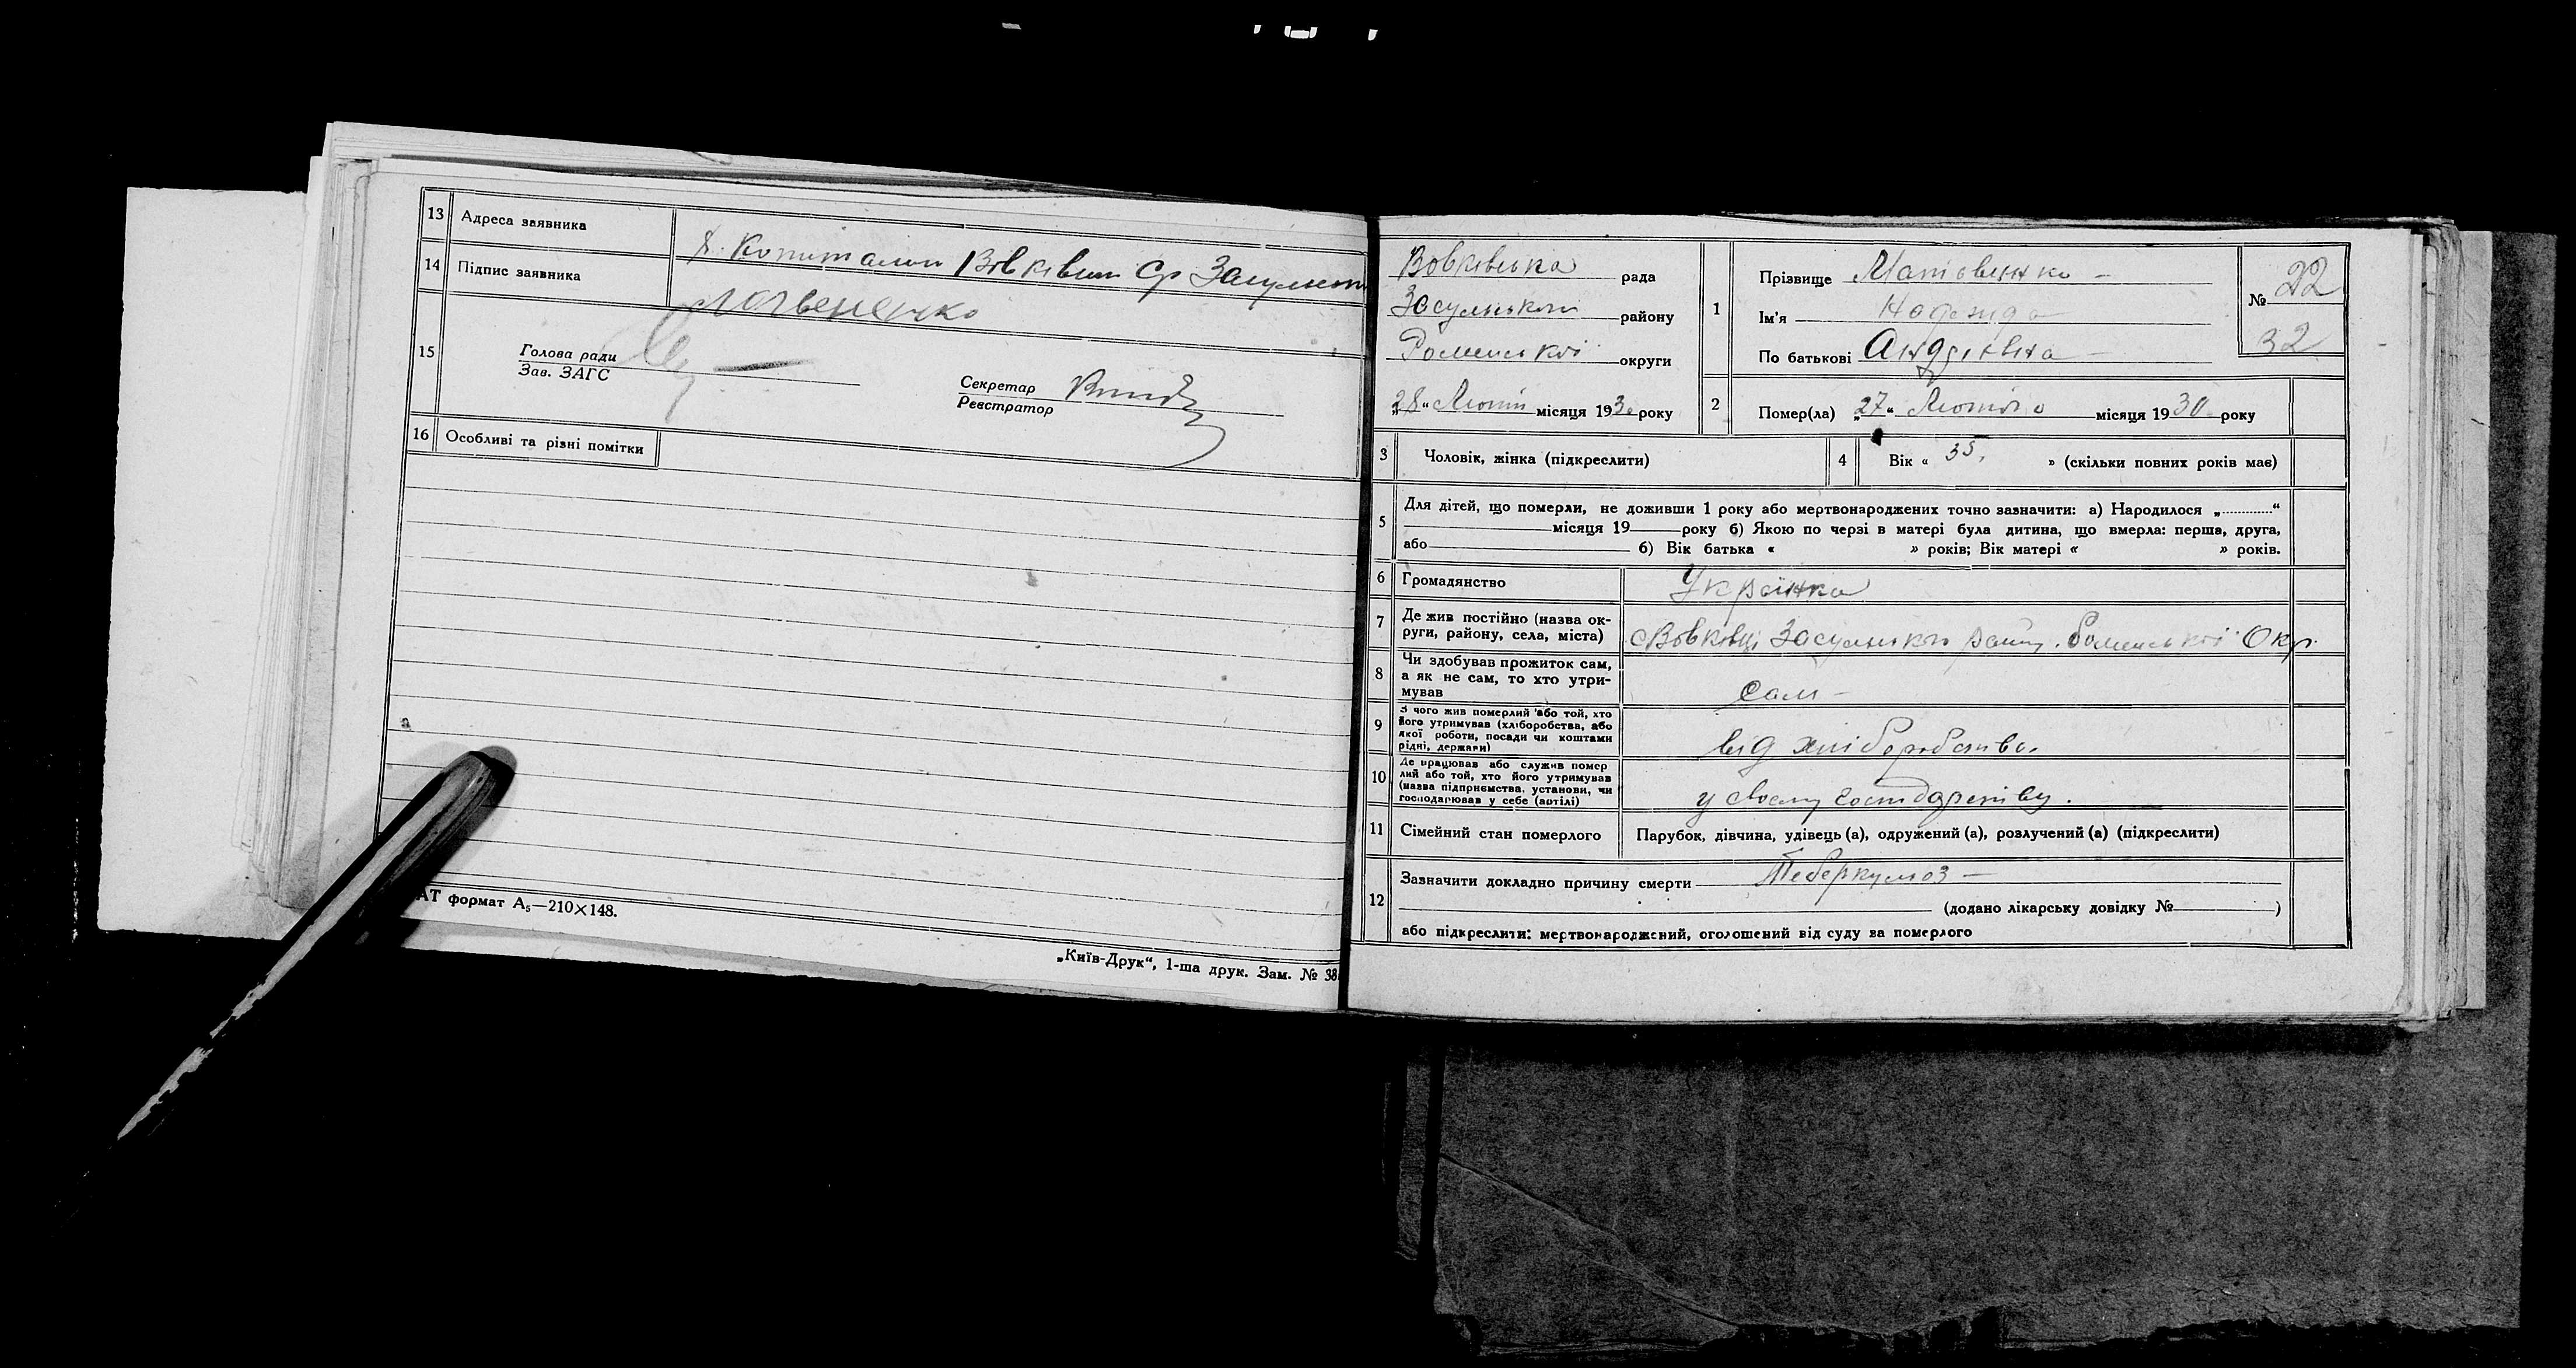 13 Адреса заявника
14 Підпис заявника
15
Голова ради
Зав. ЗАГС
Секретар
Реєстратор
16 Особливі та різні помітки
АТ формат А₅—210×148.
„Київ-Друк“, 1-ша друк. Зам. № 38
Вовківська рада
Засульського району
Роменської округи
28 “ Лютий місяця 1930 року
1 Прізвище Матвієнко –
Ім'я Надежда
По батькові Андріївна –
№ 22
32
2 Помер(ла) „27“ Лютого місяця 1930 року
3 Чоловік, жінка (підкреслити)
4 Вік « 35. » (скільки повних років має)
5 Для дітей, що померли, не доживши 1 року або мертвонароджених точно зазначити: а) Народилося „............“
місяця 19 року б) Якою по черзі в матері була дитина, що вмерла: перша, друга,
або б) Вік батька « » років; Вік матері « » років.
6 Громадянство Українка
7 Де жив постійно (назва ок-
руги, району, села, міста) с Вовківці Засульського району. Роменської Окр.
8 Чи здобував прожиток сам,
а як не сам, то хто утри-
мував сам –
9 З чого жив померлий або той, хто
його утримував (хліборобства, або
якої роботи, посади чи коштами
рідні, держави) від хліборобства.
10 Де працював або служив помер
лий або той, хто його утримував
(назва підприємства, установи, чи
господарював у себе (артілі) у своєму господарстві.
11 Сімейний стан померлого Парубок, дівчина, удівець (а), одружений (а), розлучений (а) (підкреслити)
12 Зазначити докладно причину смерти Теберкульоз –
(додано лікарську довідку № )
або підкреслити: мертвонароджений, оголошений від суду за померлого